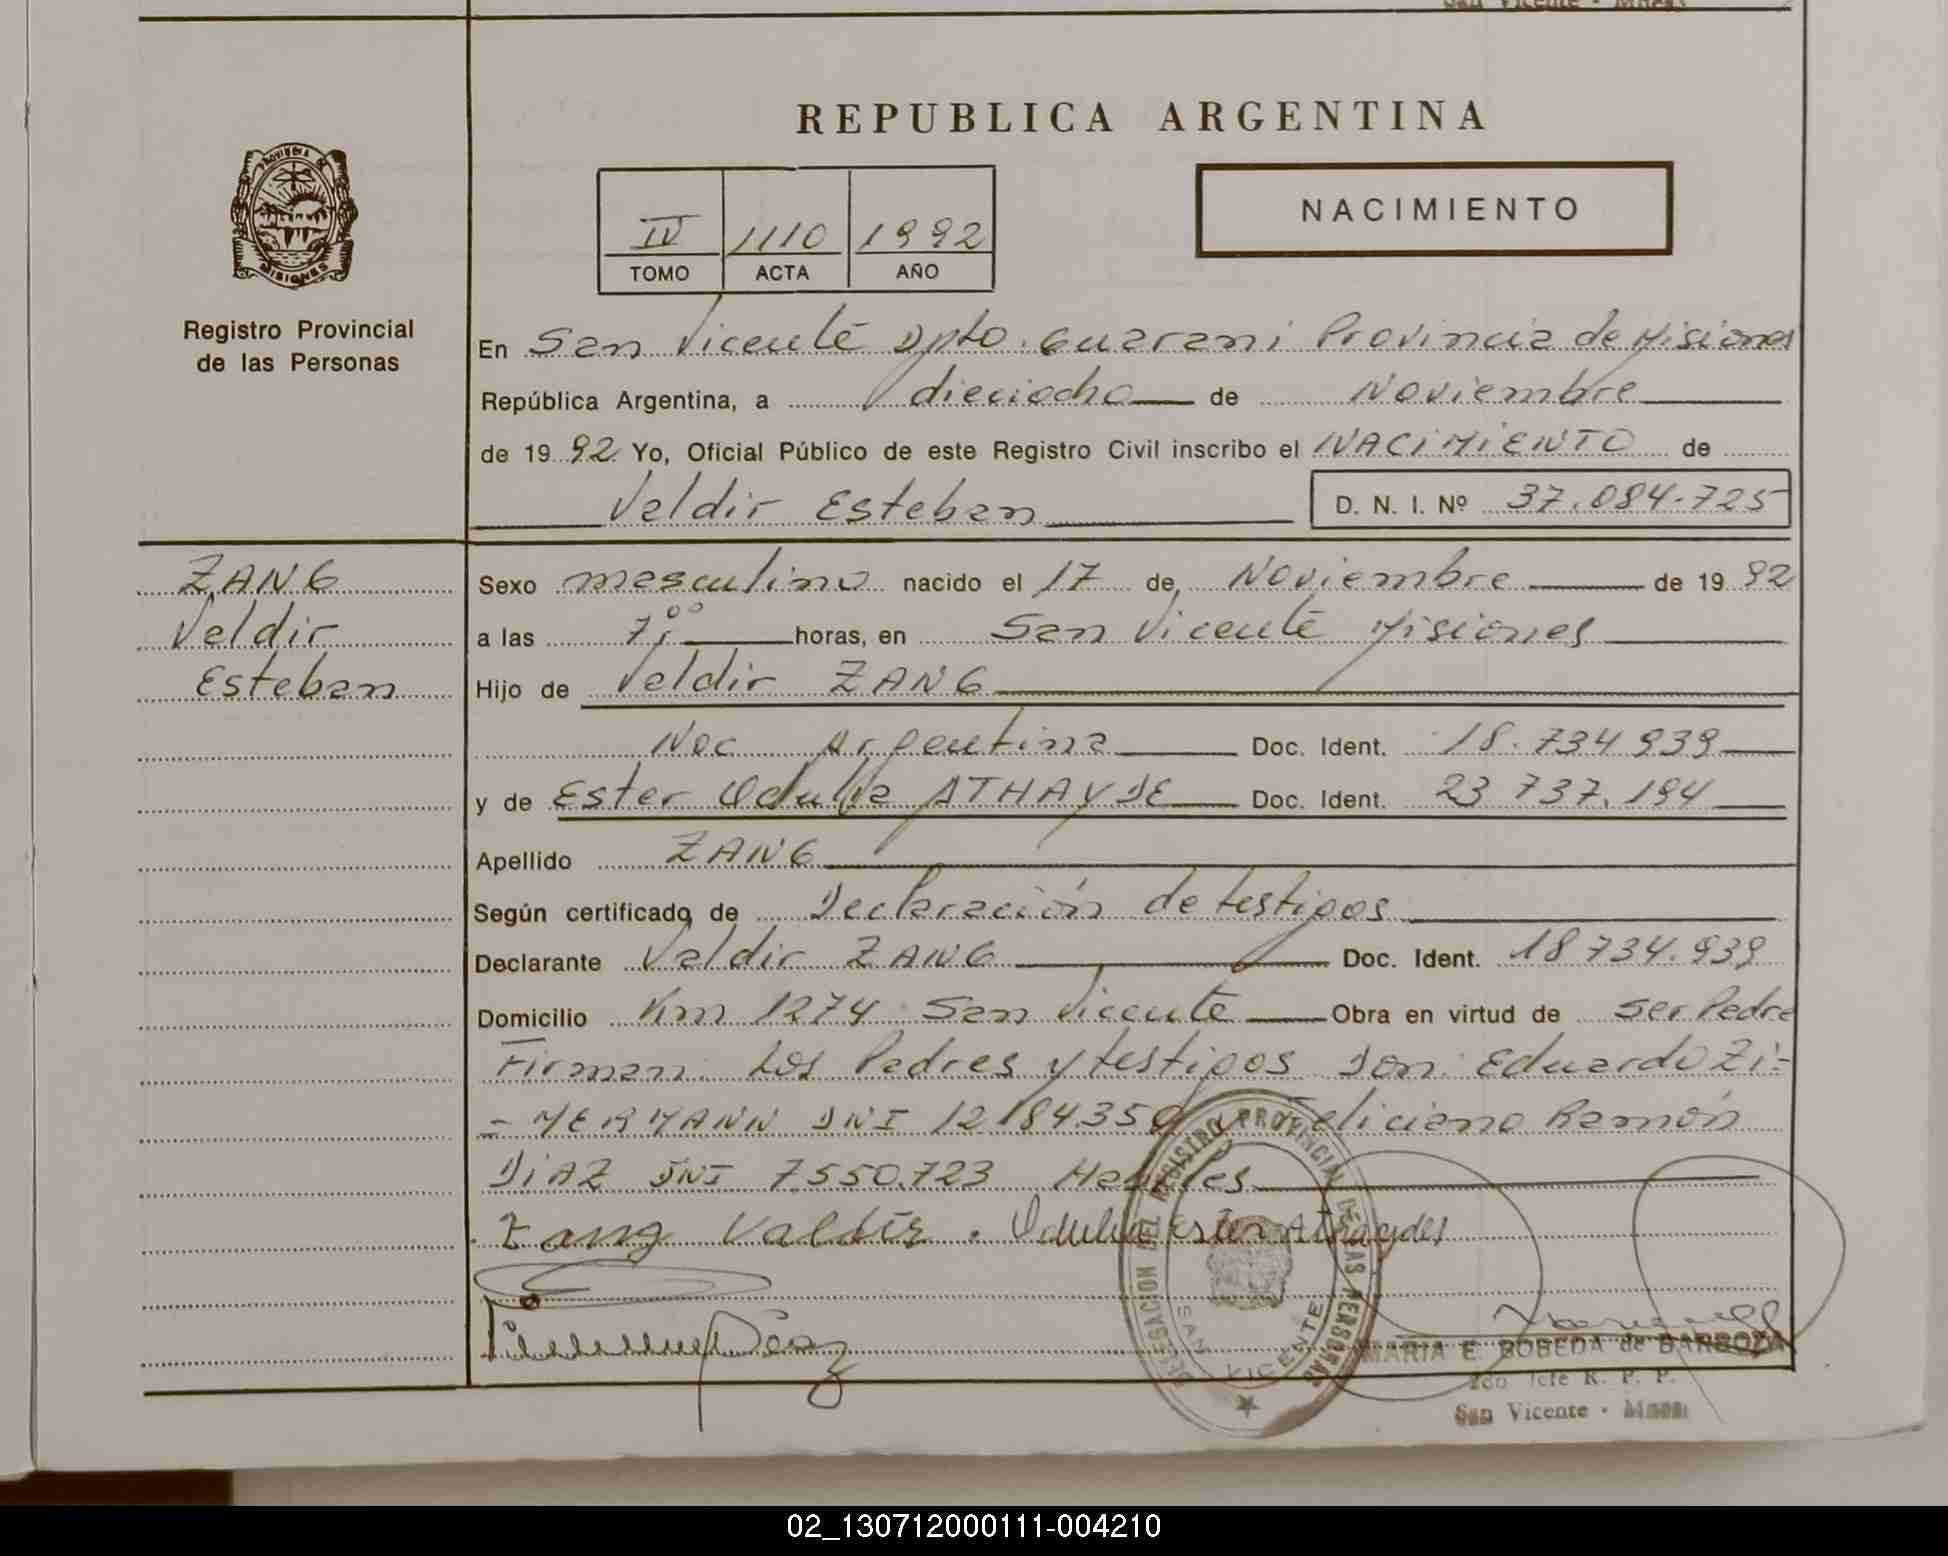 San Vicente - Mnes
REPUBLICA ARGENTINA
PROVINCIA DE
MISIONES
Registro Provincial
de las Personas
IV 1110 1992
TOMO ACTA AÑO
NACIMIENTO
En San Vicente Dpto. Guarani Provincia de Misiones
República Argentina, a dieciocho de Noviembre
de 19 92 Yo, Oficial Público de este Registro Civil inscribo el NACIMIENTO de
Valdir Esteban D. N. I. Nº 37.084.725
ZANG
Valdir
Esteban
Sexo masculino nacido el 17 de Noviembre de 19 92
a las 7,00 horas, en San Vicente Misiones
Hijo de Valdir ZANG
Nac Argentina Doc. Ident. 18.734.939
y de Ester Odulia ATHAYDE Doc. Ident. 23 737.194
Apellido ZANG
Según certificado de Declaración de testigos
Declarante Valdir ZANG Doc. Ident. 18 734.939
Domicilio Km 1274 San Vicente Obra en virtud de ser Padre
Firman. Los Padres y testigos Don: Eduardo Zi-
- MERMANN DNI 12184350 y Feliciano Ramón
DIAZ DNI 7.550.723 Habiles
Zang Valdir . Odulia Ester Athaydes
Diaz
DELEGACION DEL REGISTRO PROVINCIAL DE LAS PERSONAS
SAN VICENTE
MARIA E. BOBEDA de BARBOZA
2do Jefe R. P. P.
San Vicente - Mnes
02_130712000111-004210